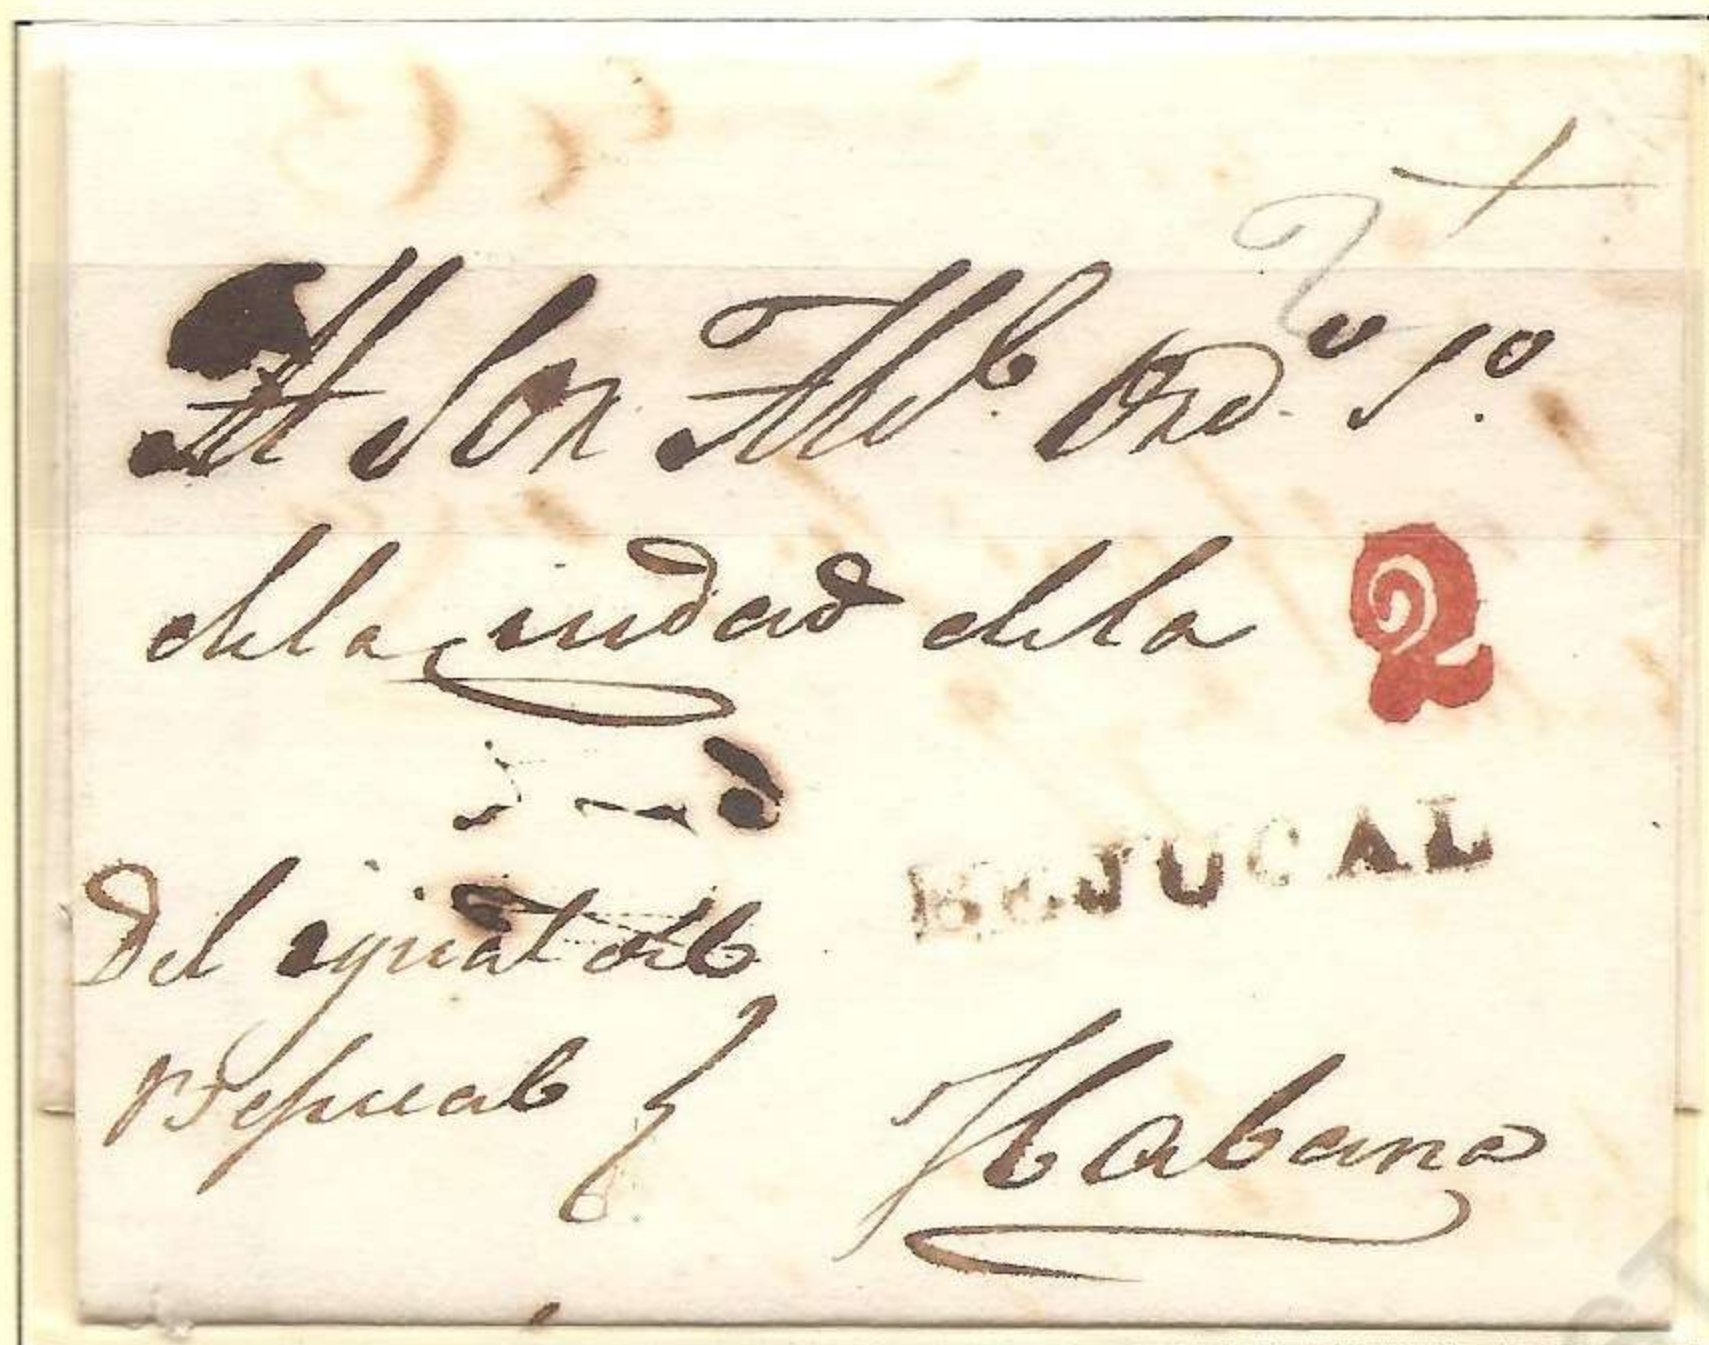 Al Sor. Alc.e Ord.o 1.o
dela ciudad dela
2
BEJUCAL
Del igual de
Bejucal
Habana